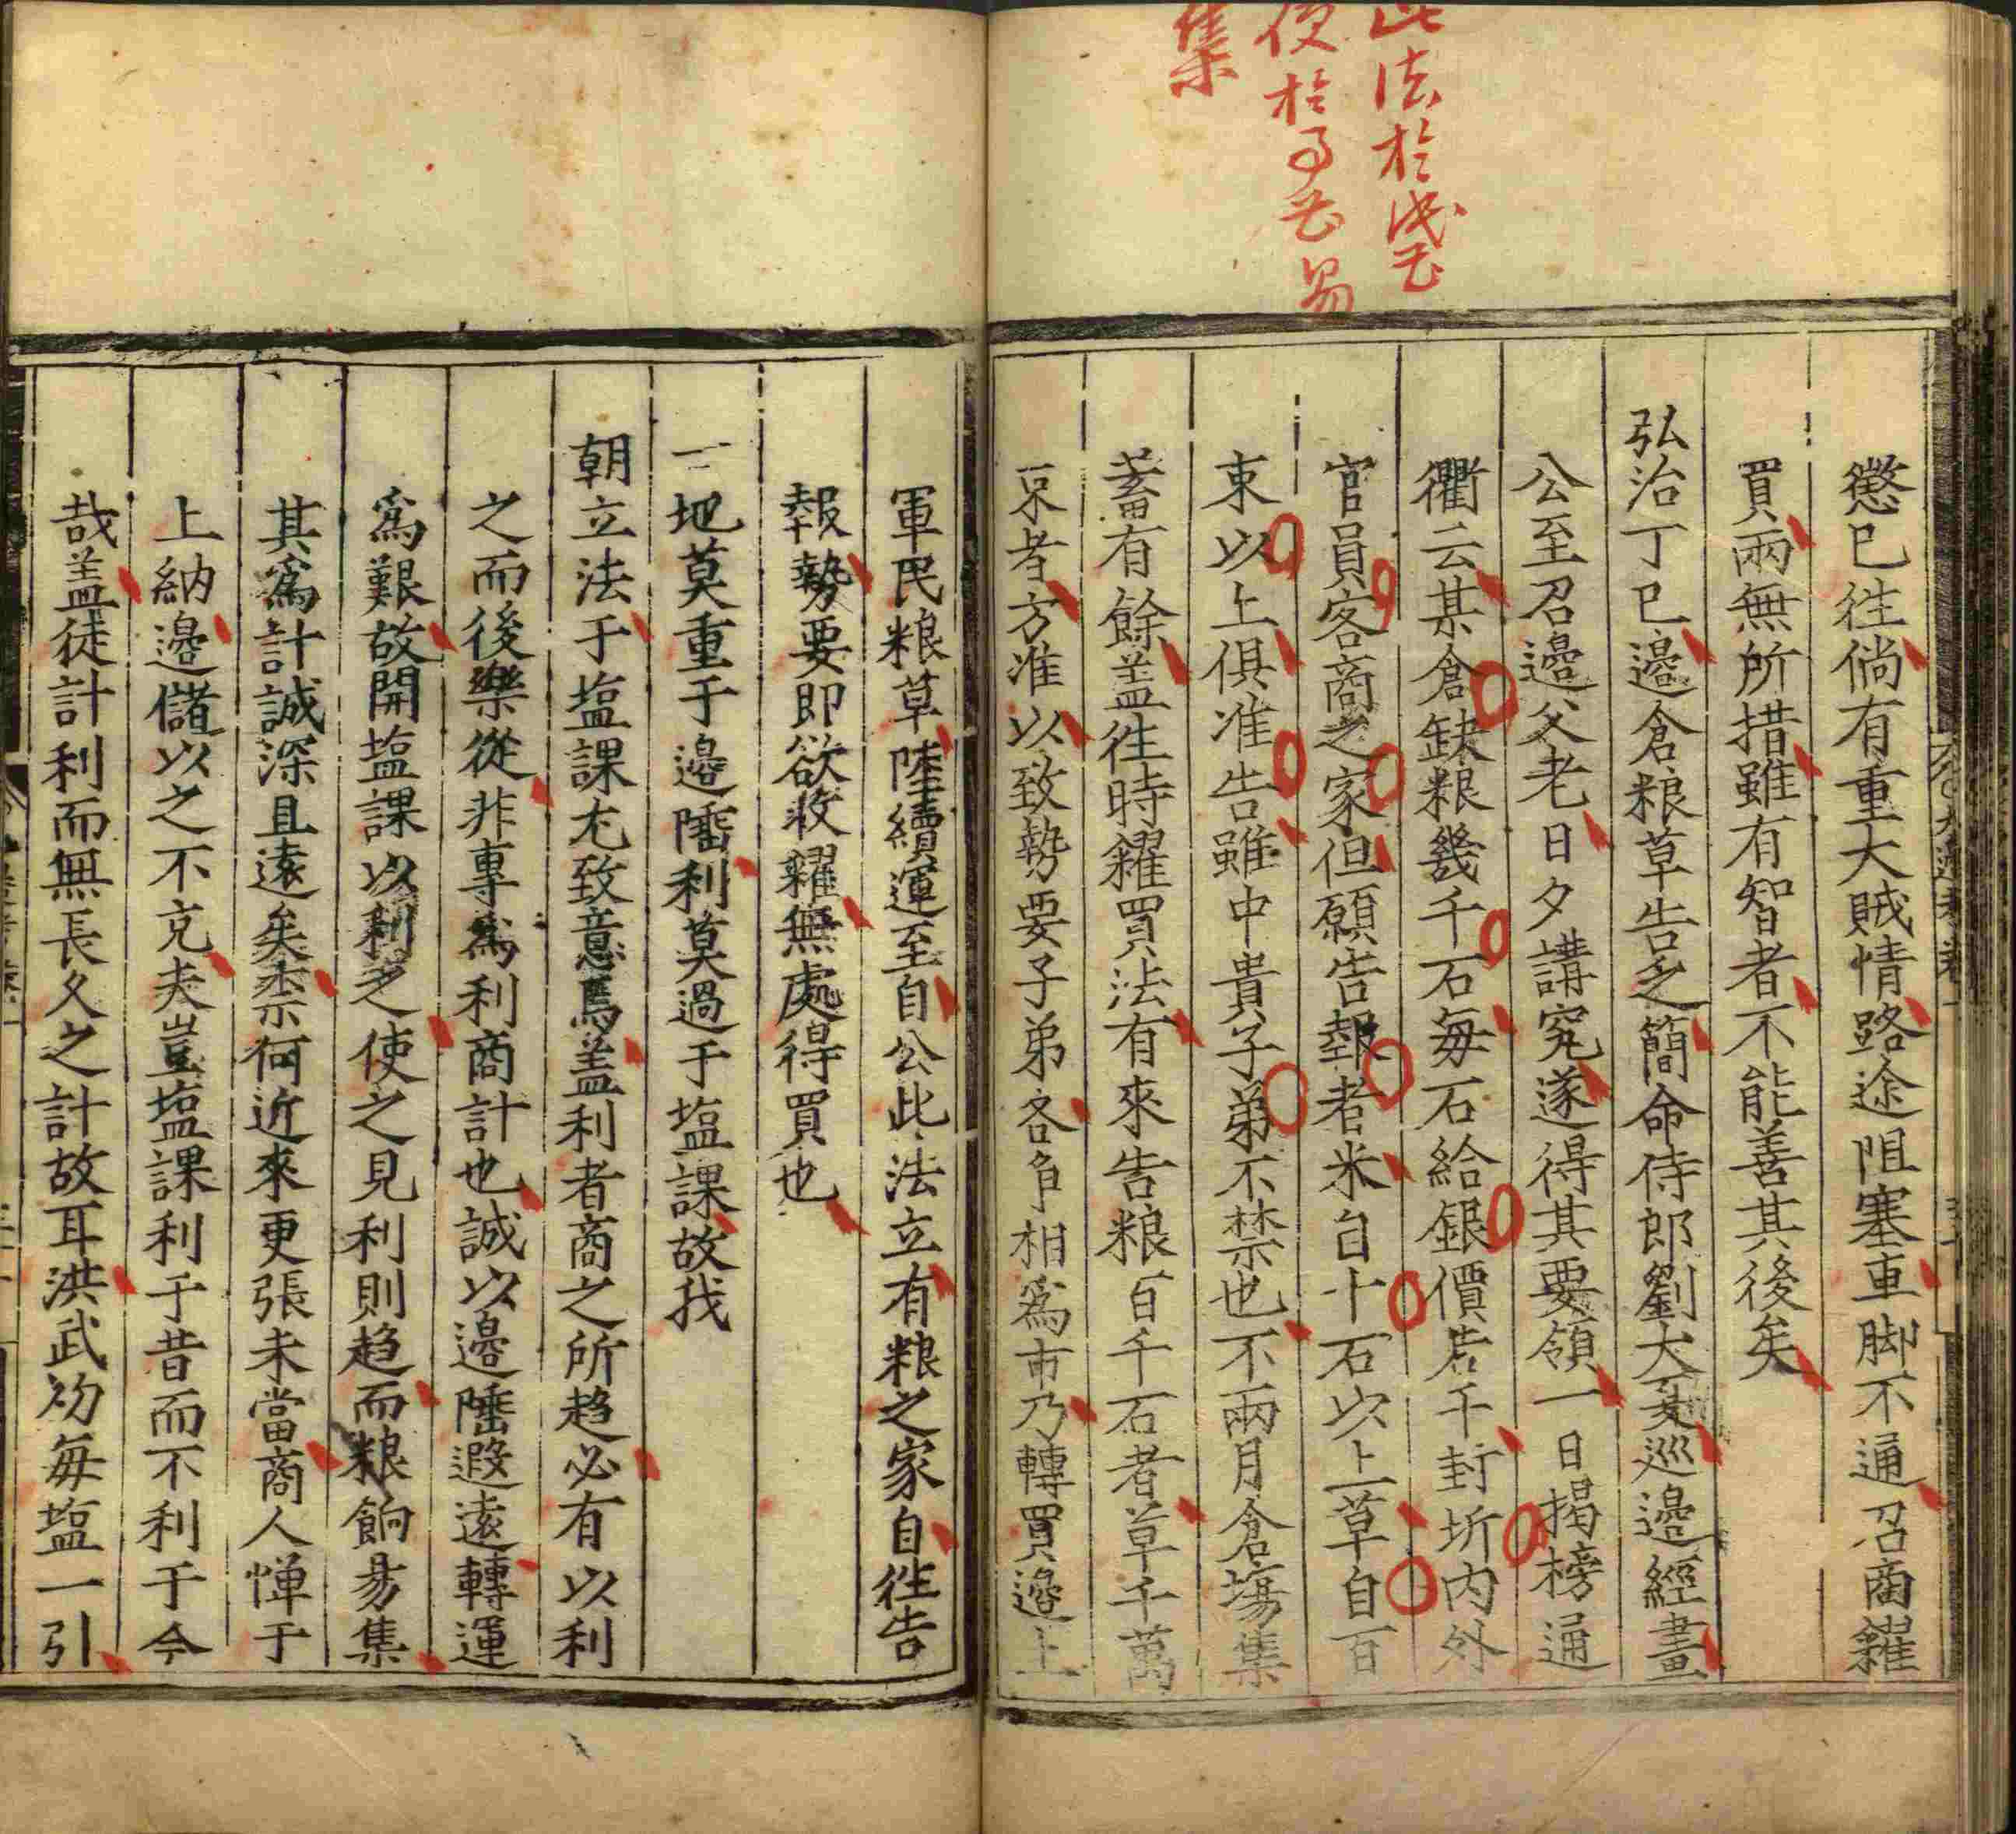 此法於浅
便於
易
集
懲已徃倘有重大賊情路途阻塞車脚不通召商糴
買兩無所措雖有智者不能善其後矣
弘治丁巳邉倉粮草告乏簡命侍郎劉大夏巡邉經畫
公至召邉父老日夕講究遂得其要領一日揭榜通
衢云某倉缺粮幾千石每石給銀價若干封圻内外
官員客商之家但願告報者米自十石以上草自百
束以上俱准告雖中貴子弟不禁也不兩月倉塲集
蓄有餘盖徃時糴買法有來告粮百千石者草千萬
束者方准以致勢要子弟各自相爲市乃轉買邉上
軍民粮草陸續運至自公此法立有粮之家自徃告
報勢要即欲收糴無處得買也
一地莫重于邉陲利莫過于塩課故我
朝立法于塩課尤致意焉盖利者商之所趋必有以利
之而後樂從非專爲利商計也誠以邉陲遐遠轉運
爲艱故開塩課以利之使之見利則趋而粮餉昜集
其爲計誠深且遠矣柰何近來更張未當商人憚于
上納邉儲以之不克夫豈塩課利于昔而不利于今
哉盖徒計利而無長久之計故耳洪武初每塩一引